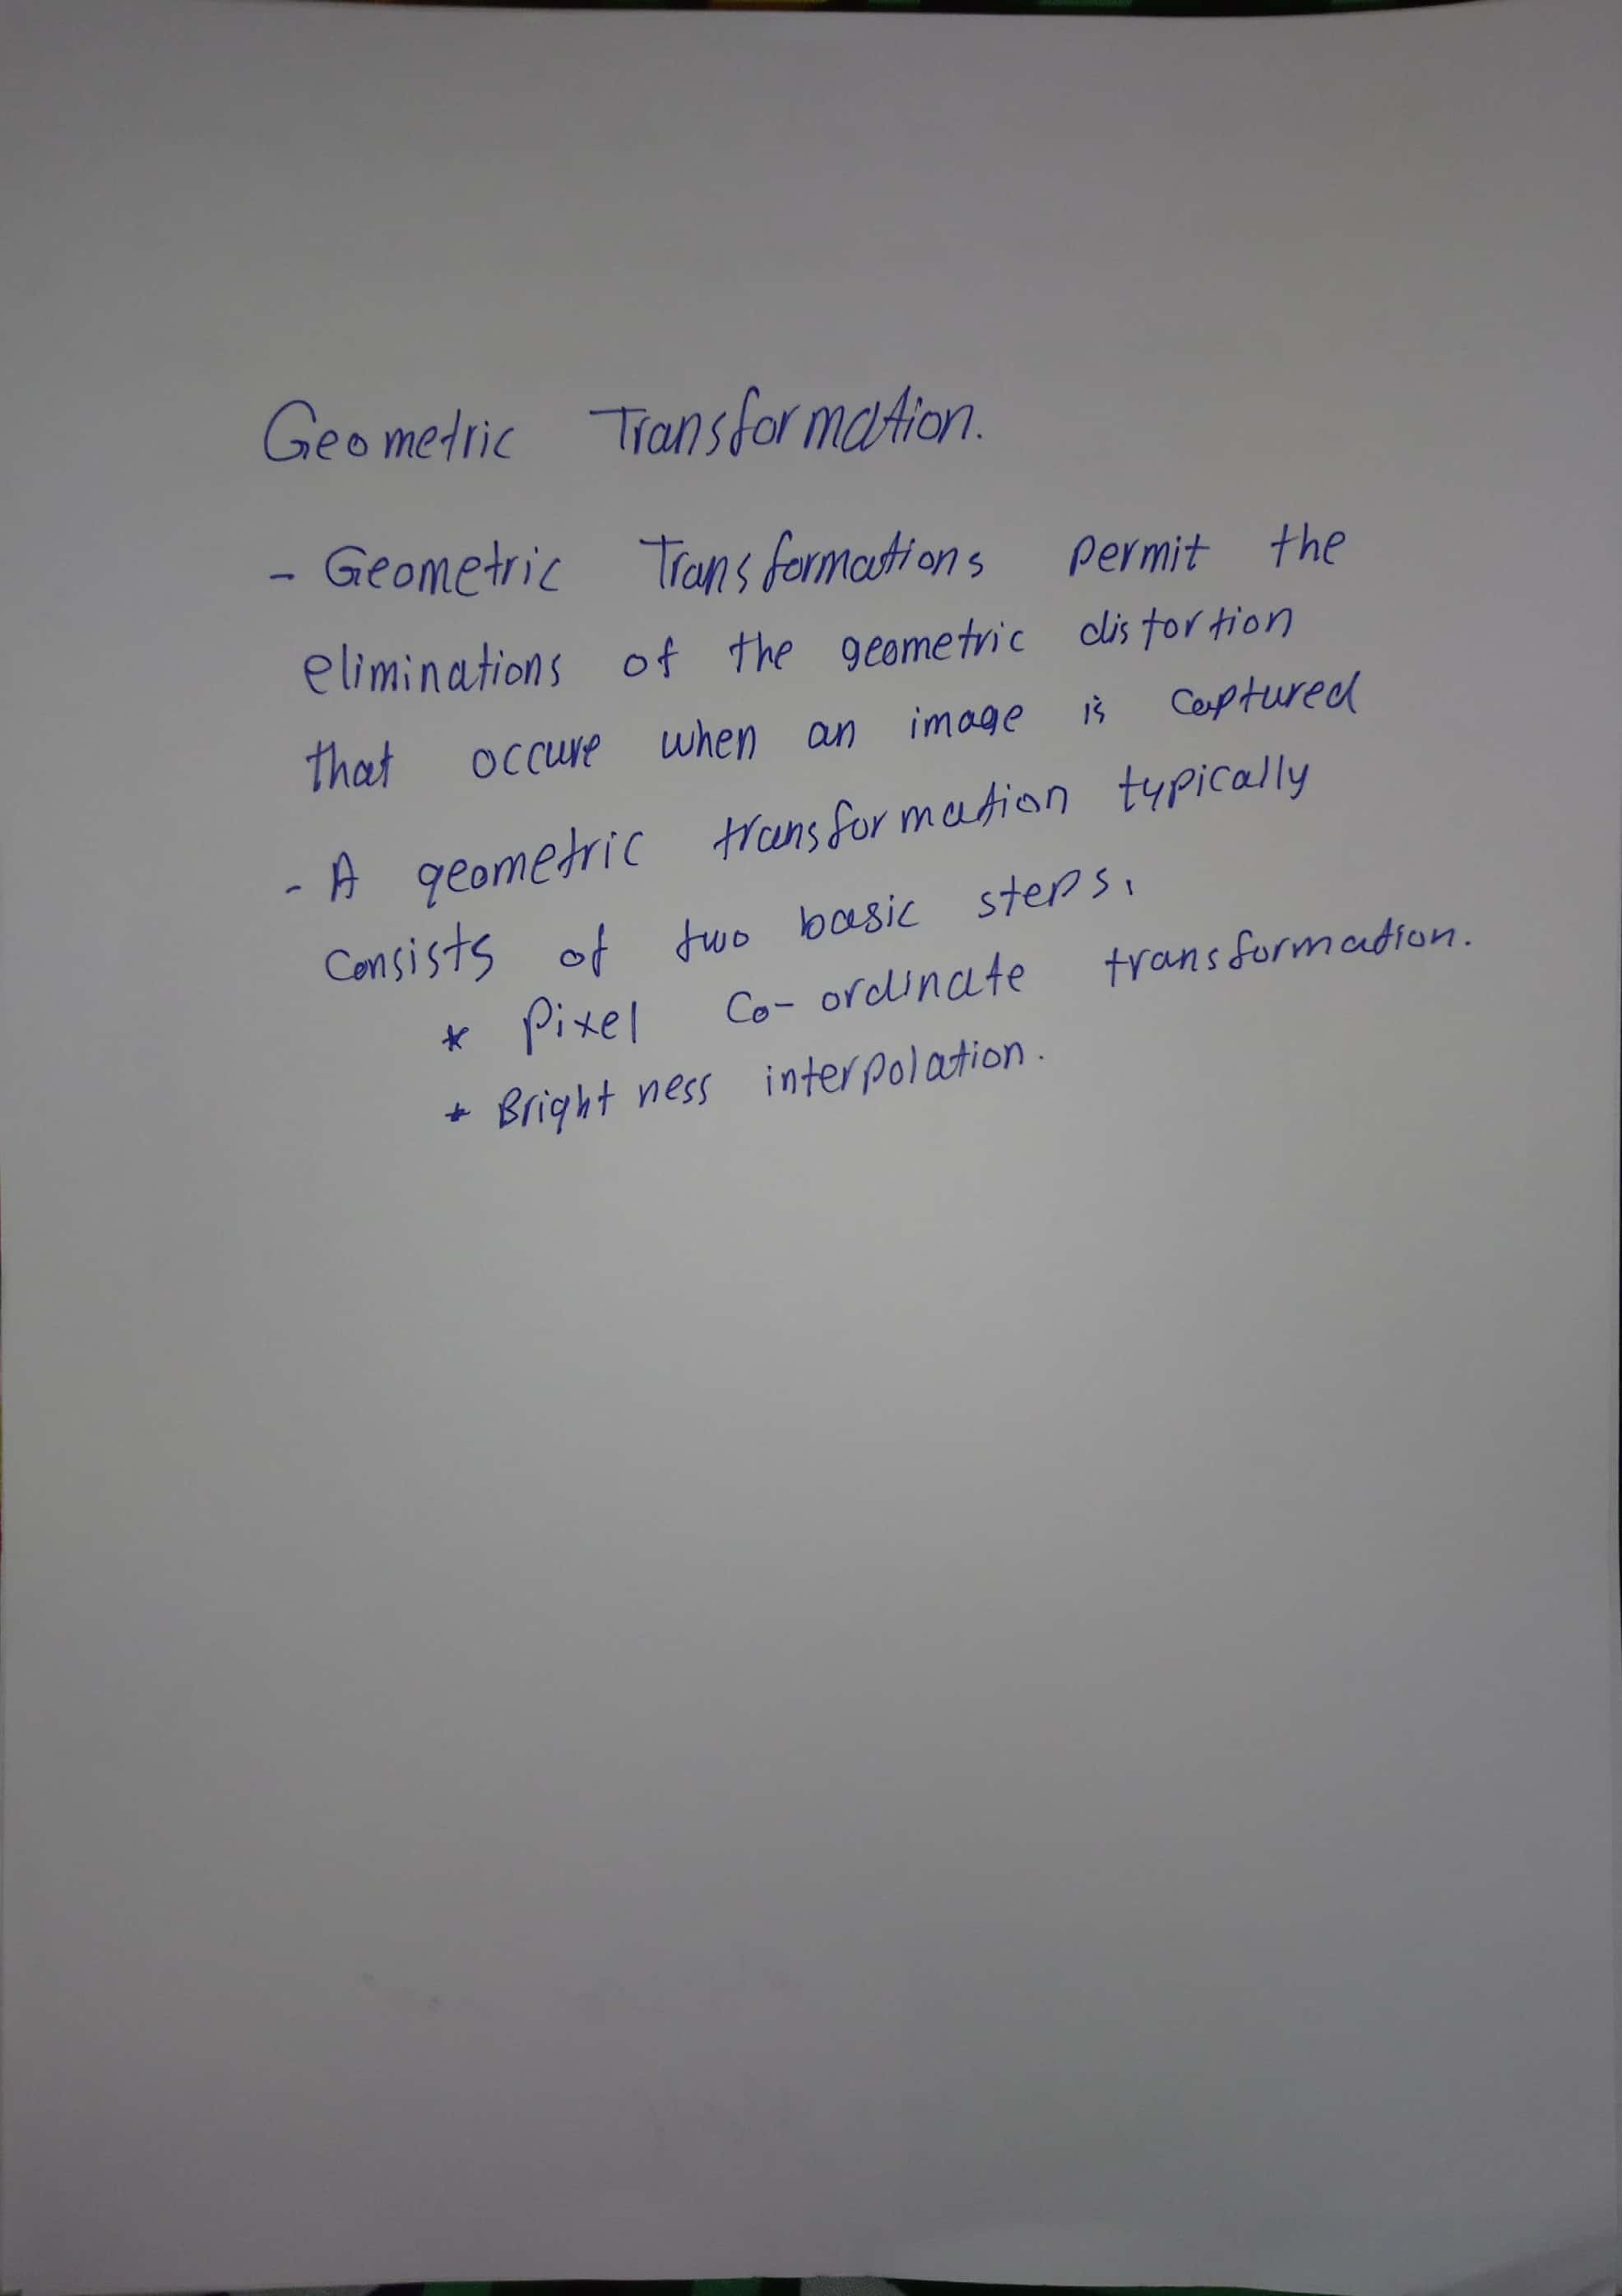 Geometric Transformation.
- Geometric Transformations permit the
eliminations of the geometric distortion
that occure when an image is captured
- A geometric transformation typically
consists of two basic steps.
* Pixel Co-ordinate transformation.
* Brightness interpolation.